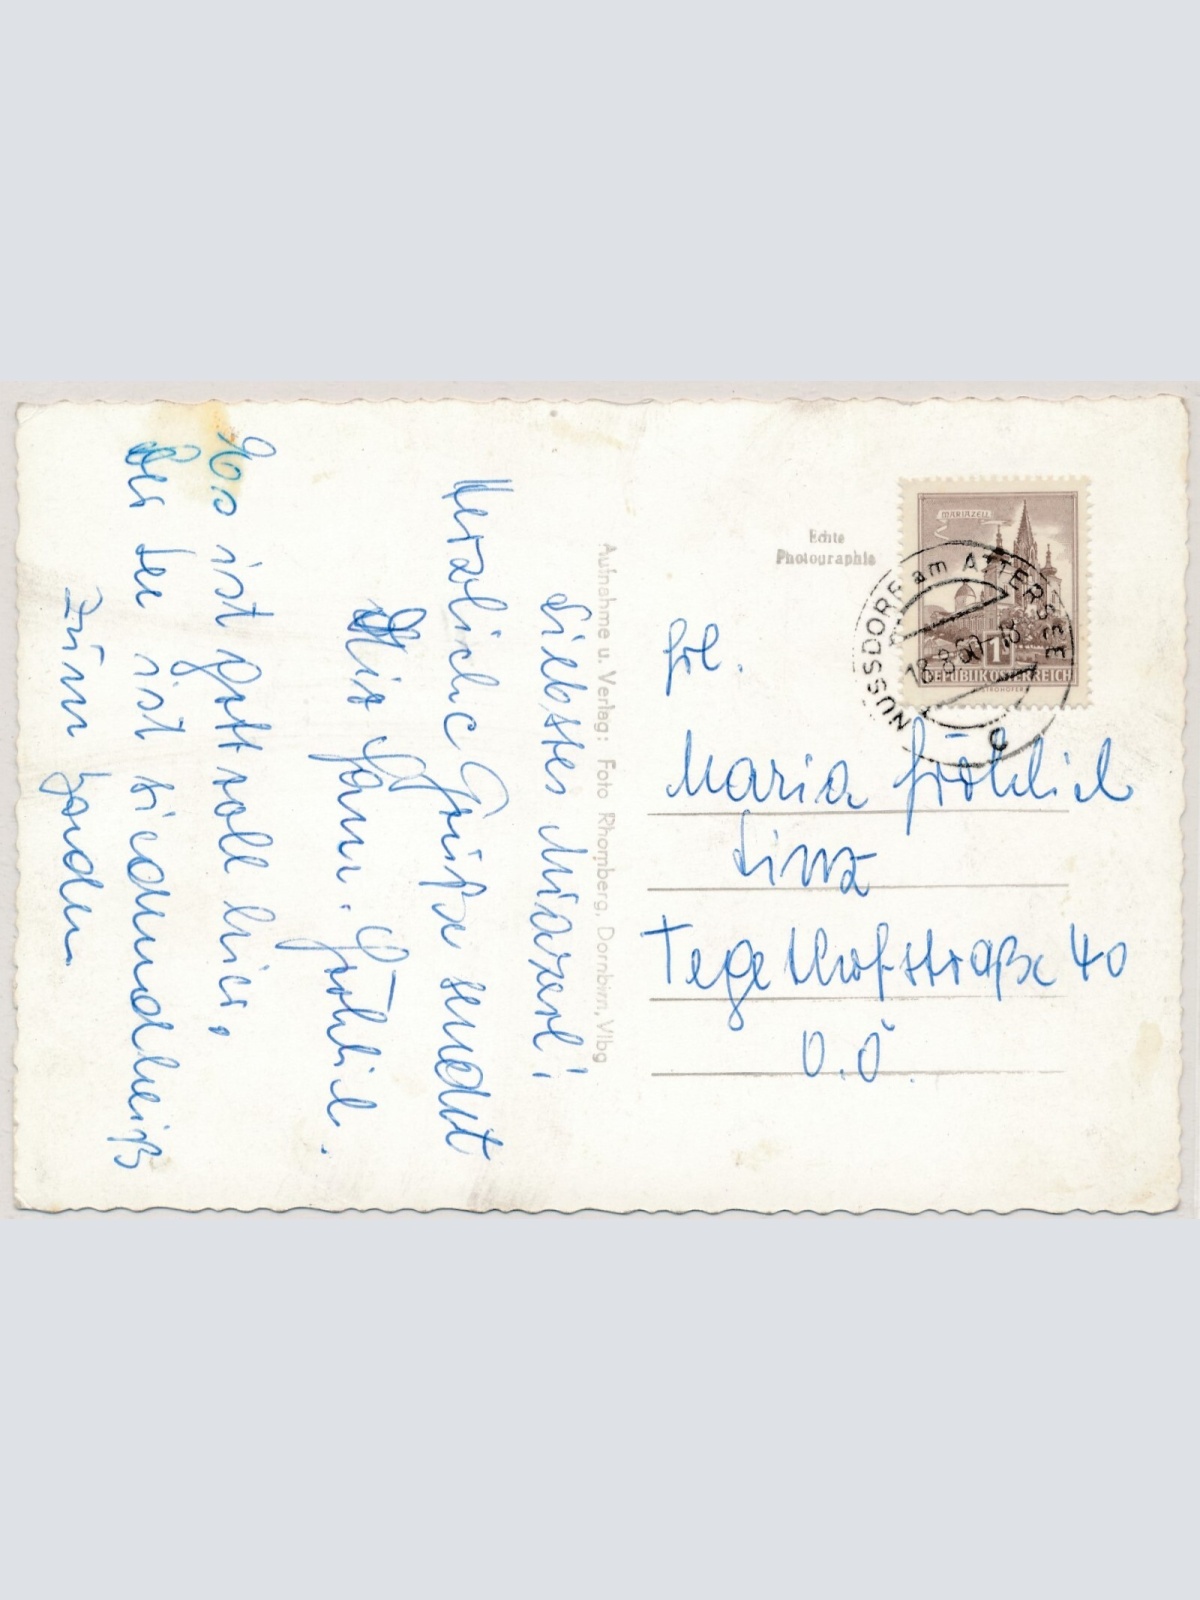 Liebstes Miazerl!
Herzliche Grüße sendet
Dir Fam. Fröhlich.
Es ist gott voll hier,
der See ist siedendheiß
zum baden
Aufnahme u. Verlag: Foto Rhomberg, Dornbirn, Vlbg
Echte
Photographie
MARIAZELL
1
REPUBLIK ÖSTERREICH
NUSSDORF am ATTERSEE
18.8.60-18
Frl.
Maria Fröhlich
Linz
Tegetthofstraße 40
O.Ö.